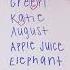 Green
Katie
August
Apple Juice
Elephant